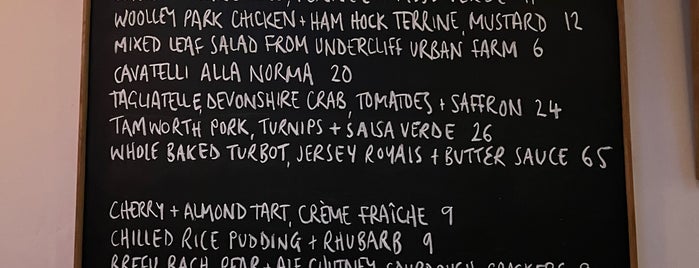 WOOLLEY PARK CHICKEN + HAM HOCK TERRINE, MUSTARD 12
MIXED LEAF SALAD FROM UNDERCLIFF URBAN FARM 6
CAVATELLI ALLA NORMA 20
TAGLIATELLE, DEVONSHIRE CRAB, TOMATOES + SAFFRON 24
TAMWORTH PORK, TURNIPS + SALSA VERDE 26
WHOLE BAKED TURBOT, JERSEY ROYALS + BUTTER SAUCE 65
CHERRY + ALMOND TART, CRÈME FRAÎCHE 9
CHILLED RICE PUDDING + RHUBARB 9
BACH, PEAR + ALE CHUTNEY, SOURDOUGH CRACKERS